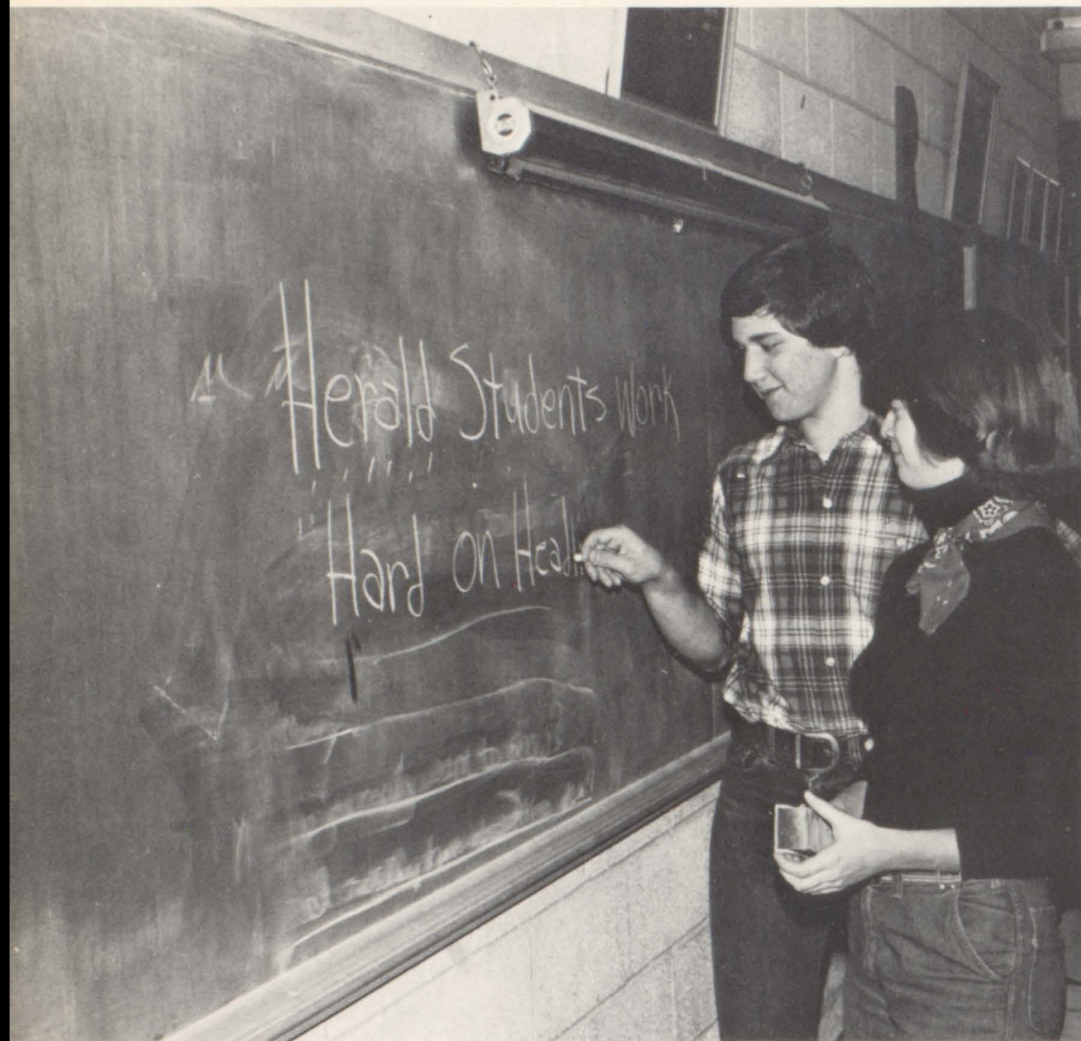 Herald Students Work
Hard on Headl